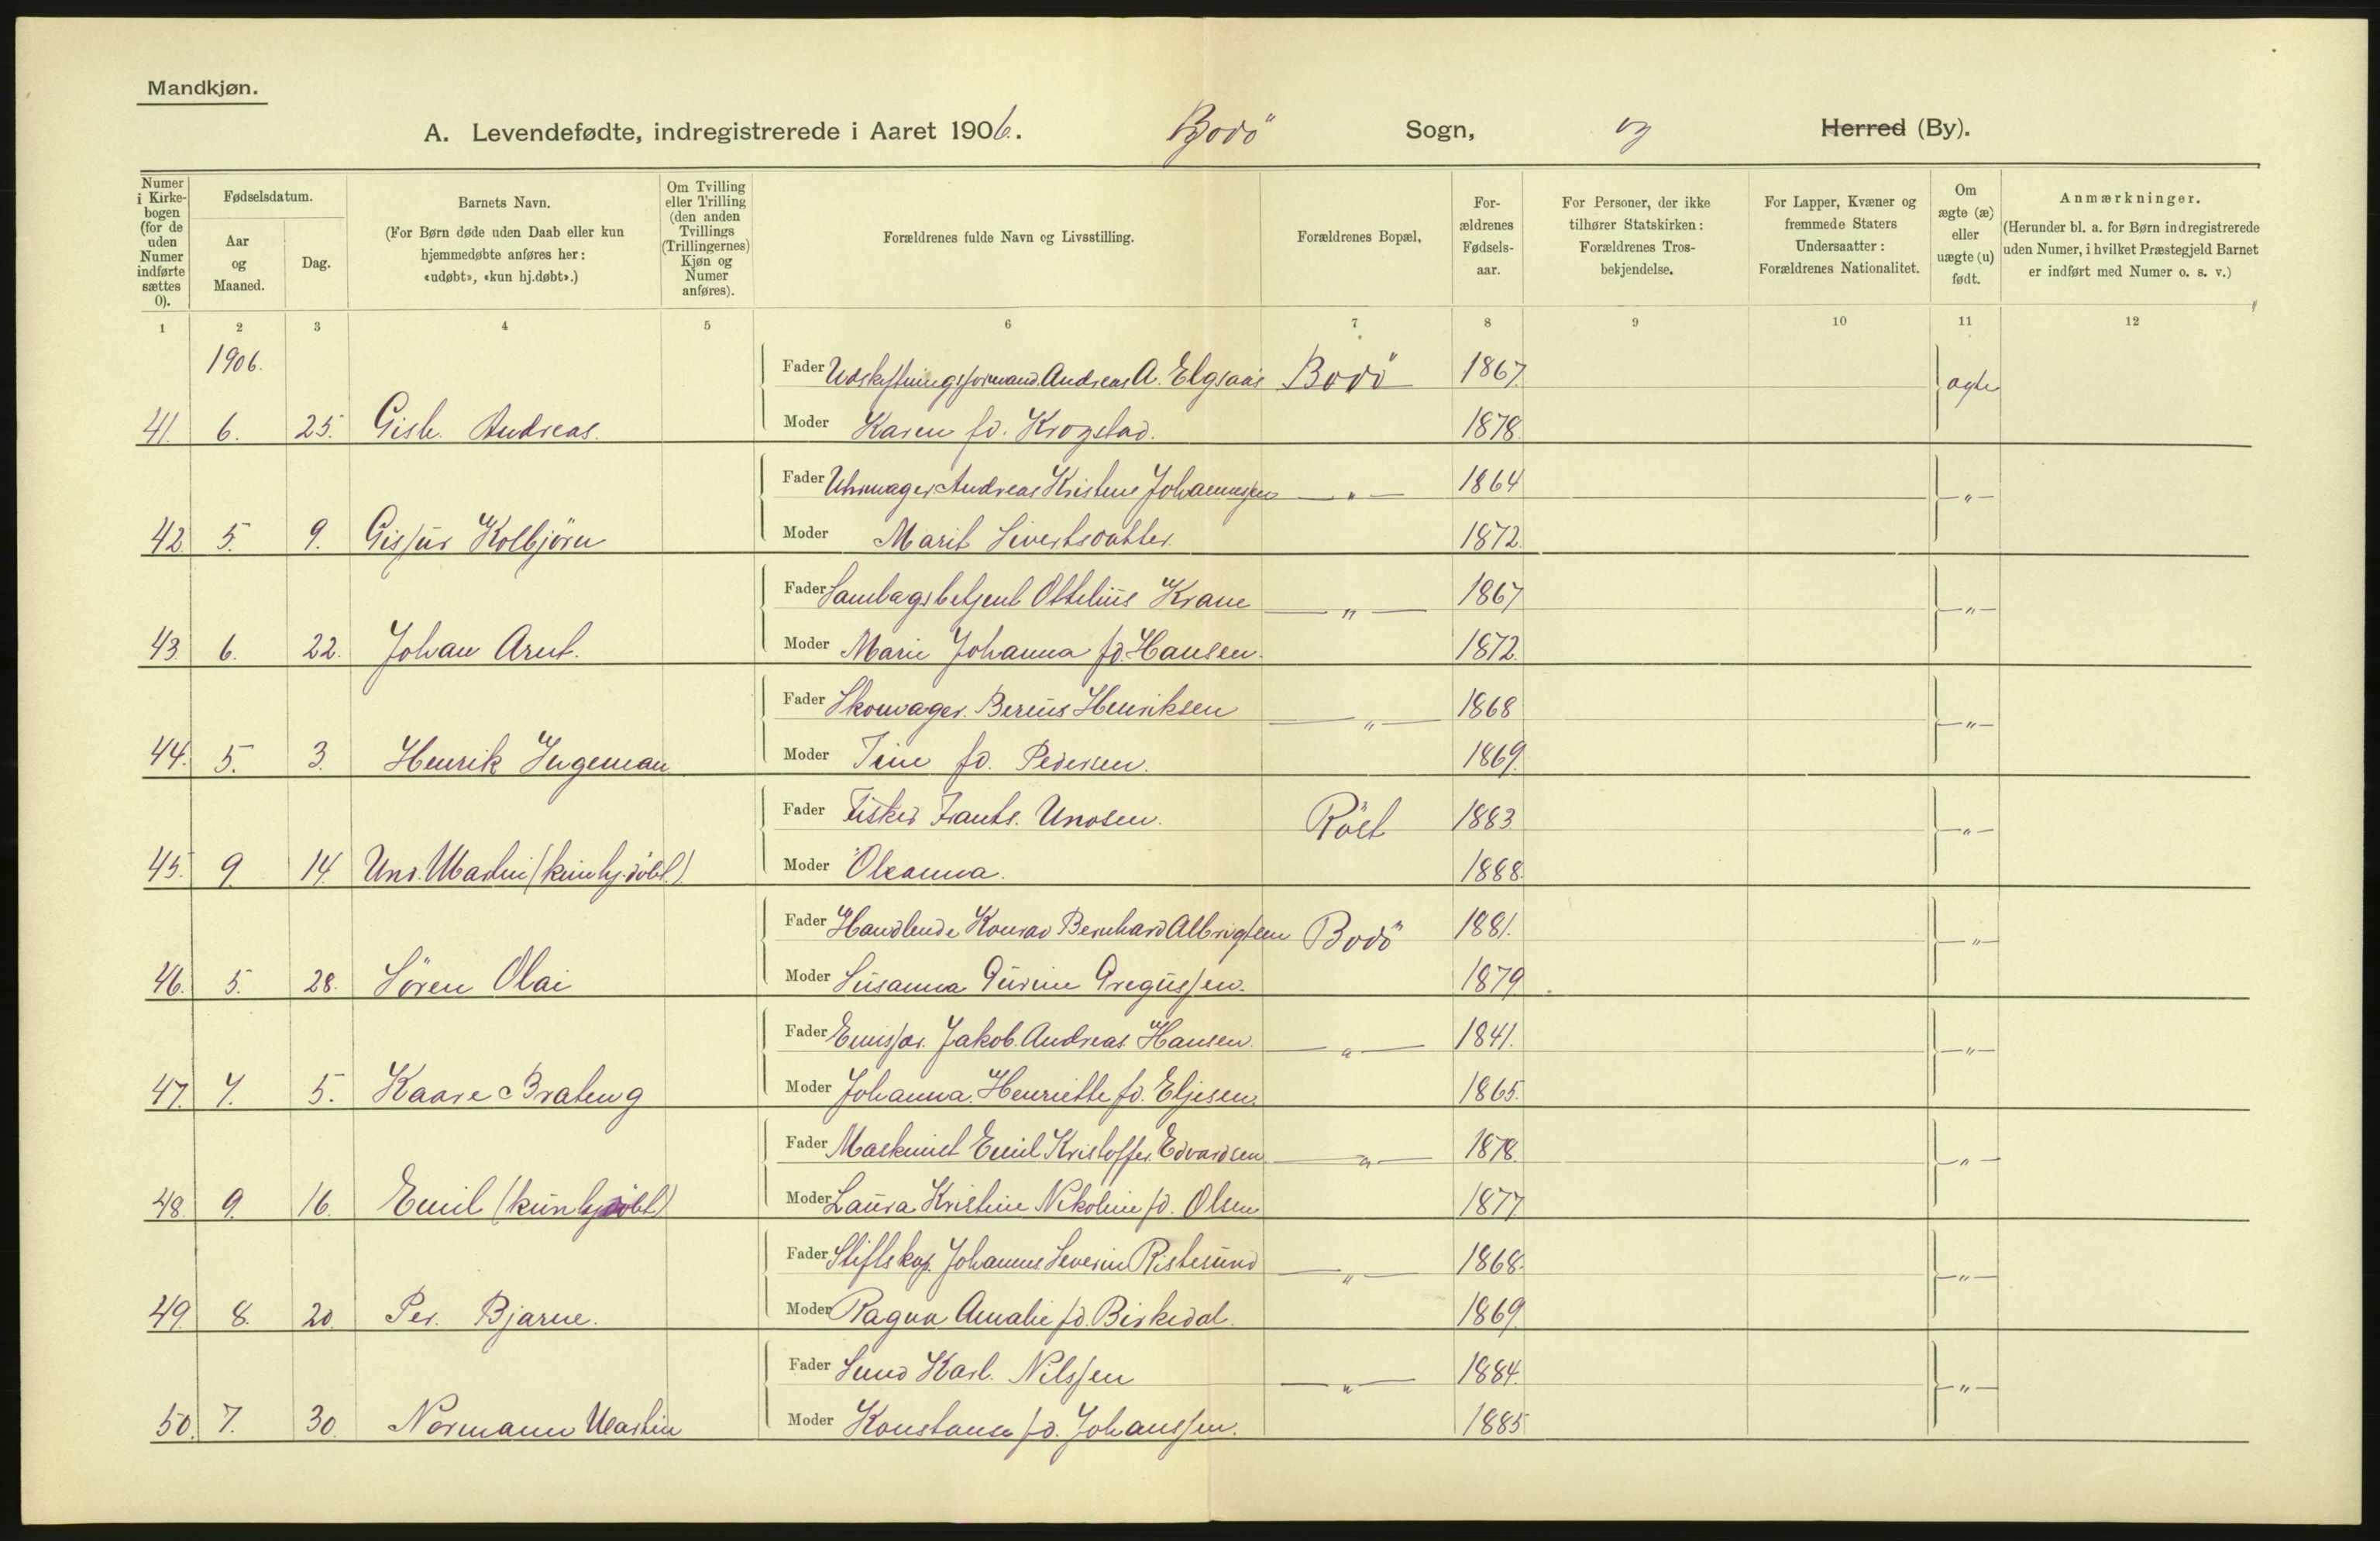 Mandkjøn.
A. Levendefødte, indregistrerede i Aaret 1906. Bodö Sogn, og Herred (By).
Numer i Kirke-bogen (for de uden Numer indførte sættes 0).
Fødselsdatum.
Aar og Maaned.
Dag.
Barnets Navn.
(For Børn døde uden Daab eller kun hjemmedøbte anføres her: «udøbt», «kun hj.døbt».)
Om Tvilling eller Trilling (den anden Tvillings (Trillingernes) Kjøn og Numer anføres).
Forældrenes fulde Navn og Livsstilling.
Forældrenes Bopæl,
For-ældrenes Fødsels-aar.
For Personer, der ikke tilhører Statskirken: Forældrenes Tros-bekjendelse.
For Lapper, Kvæner og fremmede Staters Undersaatter: Forældrenes Nationalitet.
Om ægte (æ) eller uægte (u) født.
Anmærkninger.
(Herunder bl. a. for Børn indregistrerede uden Numer, i hvilket Præstegjeld Barnet er indført med Numer o. s. v.)
1 2 3 4 5 6 7 8 9 10 11 12
1906.
Fader Udskiftningsformand Andreas A. Elgsaas Bodö 1867 ægte
41. 6. 25. Gisle Andreas. Moder Karen fd. Krogstad. 1878.
Fader Uhrmager Andreas Kristene Johannesen — " — 1864 — " —
42. 5. 9. Gissur Kolbjörn Moder Marit Sivertsdatter. 1872.
Fader Samlagsbetjent Ottelius Krane — " — 1867 — " —
43. 6. 22. Johan Arnt. Moder Marie Johanna fd. Hansen. 1872.
Fader Skomager. Bereus Henriksen — " — 1868 — " —
44. 5. 3. Henrik Ingeman Moder Tine fd. Pedersen. 1869.
Fader Fisker Frants. Unosen. Röst 1883 — " —
45. 9. 14. Uno. Martin (kun hj. döbt.) Moder Oleanna. 1888.
Fader Handlende Konrad Bernhard Albrigtsen Bodö 1881. — " —
46. 5. 28. Sören Olai Moder Susanna Gurine Gregussen. 1879
Fader Emissær. Jakob. Andreas Hansen. — " — 1841. — " —
47. 7. 5. Kaare Brateng Moder Johanna Henriette fd. Eljesen. 1865.
Fader Maskinist Emil Kristoffer. Edvardsen — " — 1878. — " —
48. 9. 16. Emil (kun hj döbt) Moder Laura Kristine Nikoline fd. Olsen 1877.
Fader Stiftskap. Johannes Severin Ristesund — " — 1868. — " —
49. 8. 20. Per. Bjarne. Moder Ragna Amalie fd. Birkedal. 1869.
Fader Karl. Nilssen — " — 1884. — " —
50. 7. 30. Normann Martin Moder Konstanse fd. Johanssen. 1885